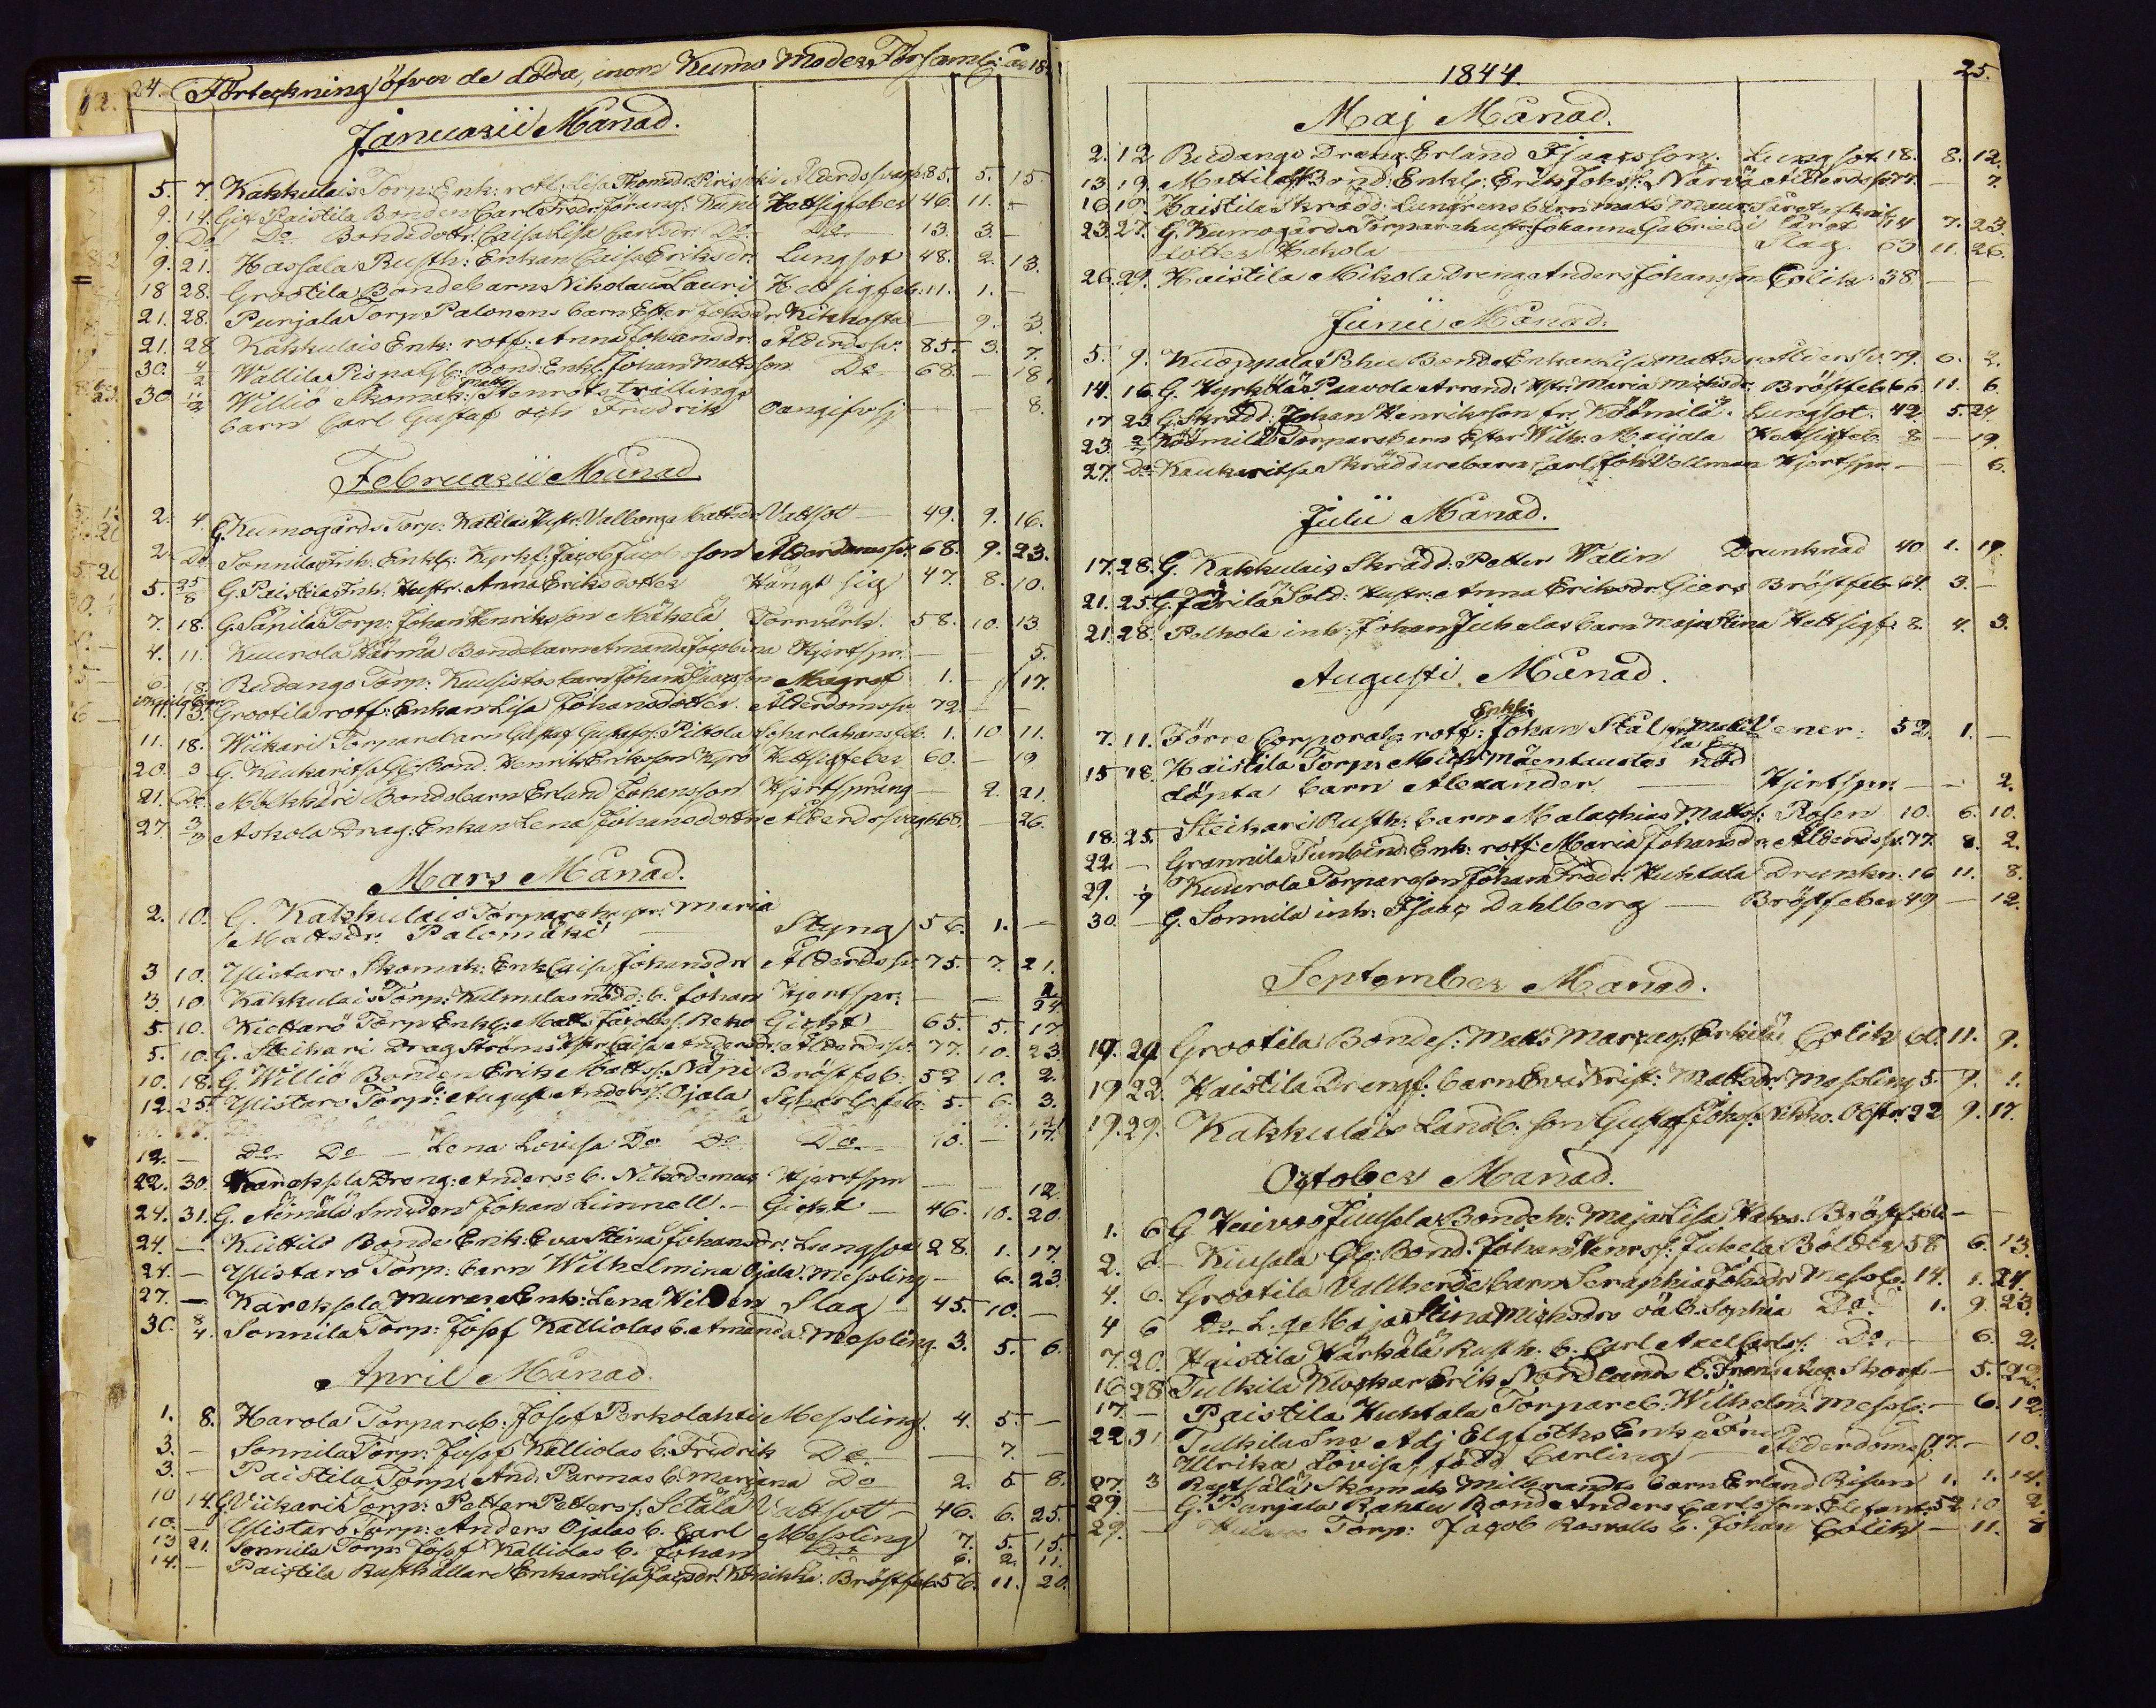 24. Förteckning öfver de döda, inom Kumo Moder Församl: år 18
Januarii Månad.
5. 7. Kakkulais Torp: Enk: rotf: Lisa Thomsdr Ålderdssvagh: 85. 5. 15
9. 14. Gif Paistila Bonden Carl Fredr: Hettsigfeber 46. 11. -
9. Do Do Bondedottr: Caisa Lisa Carlsdr: Do Do 13. 3. -
9. 21. Hassala Rusth: Enkan Caisa Eriksdr Lungsot 48. 2. 13.
18 28. Grootila Bondebarn Nikolaus Lauri Hetsigfeb: 11. 1. -
21. 28. Punjala Torp: Palonens barn Ester Johsdr: Kikhosta - 9. 3.
21. 28 Kakkulais Enk: rotf: Anna Johansdr: Ålderdssv: 85. 3. 7.
30. 4/2 Wallila Pispa Gl: Bond: Enkl: Johan Mattsson Do 68. - 18.
30 11/2 Willio Skomak: Matts Stenrots trillings
barn Carl Gustaf och Fredrik oangifvsj - - 8.
Februarii Månad.
2. 4. G. Kumogårds Torp: Katilas Hustr: Valborg Mattsdr Vattsot 49. 9. 16.
2. Do Sonnila Inh: Enkl: Kyrkf: Jacob Jacobsson Ålderdomssv: 68. 9. 23.
5. 25/8 G. Paistila Inh: Hustr: Anna Eriksdotter Hängt sig 47. 8. 10.
7. 18. G. Säpilä Torp: Johan Henriksson Mäkelä Torrvärk. 58. 10. 13
4. 11. Kuurola Härmä Bondebarn Amanda Jacobina Hjertspr: - - 5.
6. 18. Rudango Torp: Kuusistos barn Johan Isacsson Magref 1. - 17.
11. 13. Grootila rotf: Enkan Lisa Johansdotter. Ålderdomssv: 72 - -
11. 18. Wiikari Torparebarn Gustaf Gustafs: Pittola Scharlakansfeb. 1. 10 11.
20. 3 G. Kaukaritsa Gl: Bond: Henrik Eriksson Kyrö Hettsigfeber 60. - 19
21. Do Mökkäri Bondsbarn Erland Johansson Hjertsprång - 2. 21.
27. 3/3 Askola Drag: Enkan Lena Johansdottr Ålderdssvagh 68. - 26.
Mars Månad.
2. 10. G. Kakkulais Torpare hustr: Maria
Mattsdr: Palomäki - Styng 56. 1. -
3 10. Ylistaro Skomak: Enk: Caisa Johansdr Ålderdssv: 75. 7. 21.
3. 10 Kakkulais Torp: Kulmalas nödd: b. Johan Hjertspr: - - 2/24
5. 10. Kiettarö Torp: Enkl: Matts Jacobss: Reko Gickt 65. 5. 17
5. 10. G. Steikari Drag Ströms Hstr Caisa Andersdr: Ålderdssv: 77. 10. 23.
10. 18. G. Willio Bonden Erik Mattss: Näpi Bröstfeb: 52 10. 2.
12. 25. Ylistaro Torp: b. August Anderss: Ojala Scharl:feb. 5. 6. 3.
12. - Do Do - Lena Lovisa Do Do Do 10. - 17.
22. 30. Karekssla Dreng: Anders b. Nikodemus Hjertspr - - 12.
24. 31. G. Äimälä Smeden Johan Linnell. - Gickt - 46. 10. 20.
24. - Küttilö Bonde Enk: Eva Stina Johansdr: Lungsot 28. 1. 17
24. - Ylistaro Torp: barn Wilhelmina Ojala: Messling - 6. 23.
27. - Karekssla Murar Enk: Lena Wilden Slag - 45. 10. -
30. 8/4. Sonnila Torp: Josef Kalliolas b. Amanda: Messling. 3. 5. 6.
April Månad.
1. 8. Harola Torpare b. Josef Perkolahti Messling. 4. 5. -
3. - Sonnila Torp: Josef Kalliolas b. Fredrik Do - 7. -
3. - Paistila Torp: And: Parmas b. Mariana Do 2. 5 8.
10 14. G Viikari Torp: Petter Petterss: Setälä Vattsot - 46. 6. 25.
10. - Ylistaro Torp: Anders Ojalas b. Carl Messling 7. 5. 15.
13 21. Sonnila Torp: Josef Kalliolas b. Johan Do 6. 2. 11.
14. - Paistila Rusthållare Enkan Lisa Jacsdr: Krinkka. Bröstfeb. 56. 11. 20.
1844. 25.
Maj Månad.
2. 12 Rudango Dreng Erland Isaacsson. Lungsot 18. 8. 12.
13. 19. Mattila Bond: Enkl: Erik Johss: Närvä Ålderdssv 77. - 7.
16 19. Haistila Skrädd: Lungrens barn Matts Maur:
23. 27. G. Kumogårds Torpare hustr: Johanna Gabriels 14 7. 23.
dotter Kakola Slag. 63 11. 26.
26. 29. Haistila Mikola Dreng Anders Johansson Colik. 38. - -
Junii Månad.
5. 9. Kuoppala Pehu Bonde Enkan Lisa Mattsdr Ålderdssv. 79. 6. 2.
14. 16 G. Kyrkilä Paavola Arrend: Hstr: Maria Michsdr Bröstfeb. 66. 11. 6.
17 23 G. Skrädd: Johan Henriksson fr: Köömilä. Lungsot. 42. 5. 24
23. 2/7 Köömilä Torparebarn Ester Wilh: Maijala Hettsigfeb 8 - 19.
27. Do Kaukaritsa Skräddarebarn Carl Joh: Vellman Hjertspr - - 6.
Julii Månad.
17. 28. G. Kakkulais Skrädd: Petter Walin Drunknad 40 1. 19.
21. 25. G. Färilä Sold: Hustr: Anna Eriksdr: Giers Bröstfeb. 67. 3. -
21. 28. Pelhola inh: Johan Juhelas barn Maja Stina Hettsigf: 8. 4. 3.
Augusti Månad.
7. 11. Förre Corporals rotf: Enkl: Johan Stål Vener: 52. 1. -
15 18. Haistila Torp: Mich: Mäentaustas nöd
döpta barn Alexander - Hjertspr. - - 2.
18. 25. Steikari Rusth: barn Malachias Mattss: Rosen 10. 6. 10.
22 - Grannila Tunbind: Enk: rotf: Maria Johansdr: Ålderdssv. 77. 8. 2.
29. 1/9 Kuurola Torpareson Johan Fredr: Huhtala Drunkn. 16 11. 8.
30. - G. Sonnila inh: Isaac Dahlberg - Bröstfeber 49 - 12.
September Månad.
19. 29. Grootila Bondes: Matts Marcuss: Erkilä Colik 60. 11. 9.
19 22. Haistila Drengf: barn Eva Krist: Mattsdr: Messling 5. 9. 1.
19. 29. Kakkulais Landb. son Gustaf Johss: Nikko. Obstr. 22 9. 17.
October Månad.
1. 6 G Heivoo Juusela Bondeh: Maja Lisa Haks. Bröstfeb - -
2. 6 - Kiusala Gl: Bond. Johan Henrss: Juhela Bölder 58 6. 13.
4. 6. Grootila Vallherde barn Seraphia Johsdr Messl. 14. 1. 24.
4 6 Do L:g Maja Stina Michsdrs oä b. Sophia Do. 1. 9. 23.
7. 20. Haistila Härkälä Rusth. b. Carl Axel Carlss: Do. - 6. 2.
16 28 Tulkila Klockar Erik Nordlunds b. Frans Aug: Skorf - 5. 22.
17. - Paistila Huhtala Torpare b. Wilhelm. Messl. - 6. 12.
22 31 Tulkila Sne Adj Elgfoths Enke Fru
Ulrika Lovisa, född Carling - Ålderdomssv 77. - 10.
27. 3 Ruthsälä Skomak Milbrandts barn Erland Risen 1. 1. 14.
29. - G. Punjala Rahtu Bond Anders Carlsson Elefant. 52 10. 2.
29. - Torp: Jacob Rosvalls b. Johan Colik - 11. 8